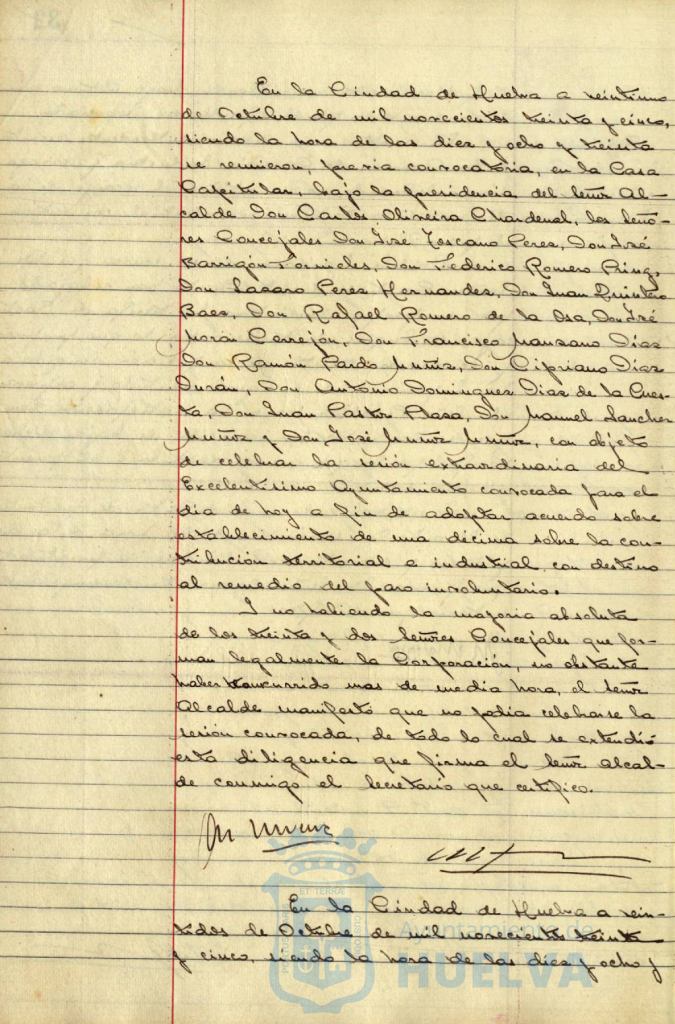 En la Ciudad de Huelva a veintiuno
de Octubre de mil novecientos treinta y cinco,
siendo la hora de las diez y ocho y treinta
se reunieron, previa convocatoria, en la Casa
Capitular, bajo la presidencia del Señor Al-
calde Don Carlos Oliveira Chardenal, los Seño-
res Concejales Don José Toscano Perez, Don José
Barrigón Fornieles, Don Federico Romero
Don Lazaro Perez Hernandez, Don Juan Quintero
Baez, Don Rafael Romero de la Osa, Don José
Morón Cerrejón, Don Francisco Manzano Díaz
Don Ramón Pardo Muñoz, Don Cipriano Díaz
Durán, Don Antonio Dominguez Diaz de la Cues-
ta, Don Juan Pastor Plasa, Don Manuel Sanchez
Muñoz y Don José Muñoz Muñoz, con objeto
de celebrar la sesión extraordinaria del
Excelentísimo Ayuntamiento convocada para el
día de hoy a fin de adoptar acuerdo sobre
establecimiento de una décima sobre la con-
tribución territorial e industrial con destino
al remedio del paro involuntario.
Y no habiendo la mayoria absoluta
de los treinta y dos Señores Concejales que for-
man legalmente la Corporación, no obstante
haber transcurrido mas de media hora, el Señor
Alcalde manifestó que no podia celebrarse la
sesión convocada, de todo lo cual se extendió
esta diligencia que firma el Señor Alcal-
de conmigo el Secretario que certifico.
En la Ciudad de Huelva a vein-
tidos de Octubre de mil novecientos treinta
y cinco, siendo la hora de las diez y ocho y
Ayuntamiento de
HUELVA